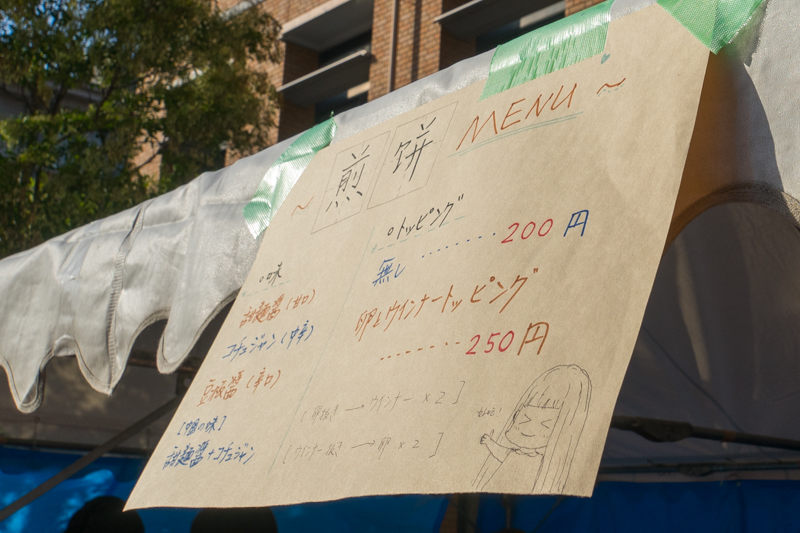 ~ 煎餅 MENU ~
○味
甜麺醤(甘口)
コチュジャン(中辛)
豆板醤(辛口)
[中国の味]
甜麺醤+コチュジャン
○トッピング
無し ........ 200円
卵とウインナートッピング
........ 250円
[卵抜き → ウインナー ×2]
[ウインナー抜き → 卵 ×2]